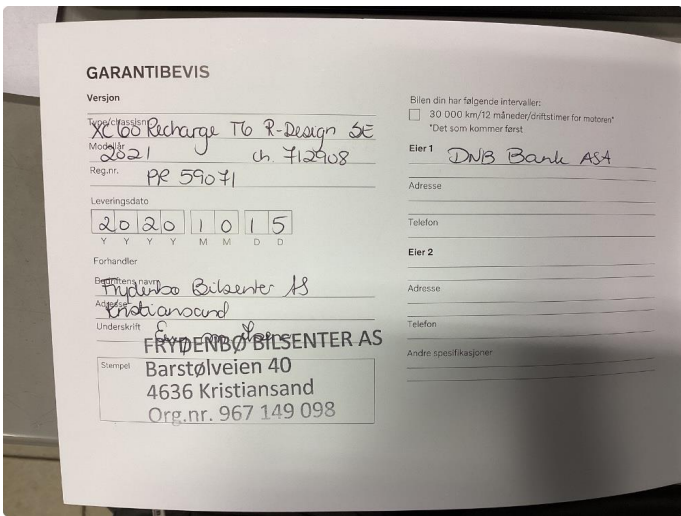 GARANTIBEVIS
Versjon
Type/chassisnr
XC60 Recharge T6 R-Design SE
Modellår
2021 ch. 712908
Reg.nr.
PR 59071
Leveringsdato
2 0 2 0 1 0 1 5
Y Y Y Y M M D D
Forhandler
Bedriftens navn
Frydenbø Bilsenter AS
Adresse
Kristiansand
Underskrift
FRYDENBØ BILSENTER AS
Stempel
Barstølveien 40
4636 Kristiansand
Org.nr. 967 149 098
Bilen din har følgende intervaller:
30 000 km/12 måneder/driftstimer for motoren*
*Det som kommer først
Eier 1 DNB Bank ASA
Adresse
Telefon
Eier 2
Adresse
Telefon
Andre spesifikasjoner